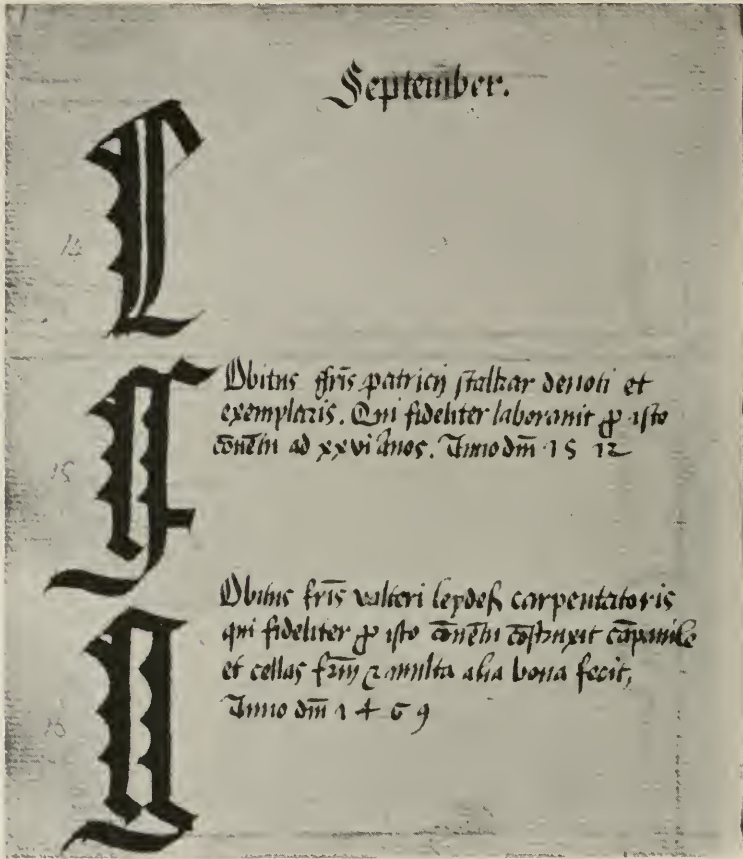 September.
E
14
F
Obitus ffr̄is patricij stalkar deuoti et
exemplaris. Qui fideliter laborauit ꝓ isto
cōuētu ad xxvi ānos. Anno dm̄ 1512
15
G
Obitus fr̄is valteri leydeß carpentatoris
qui fideliter ꝓ isto cōuētu cōstruxit cāpanile
et cellas fr̄m ⁊ multa alia bona fecit,
Anno dm̄ 1469